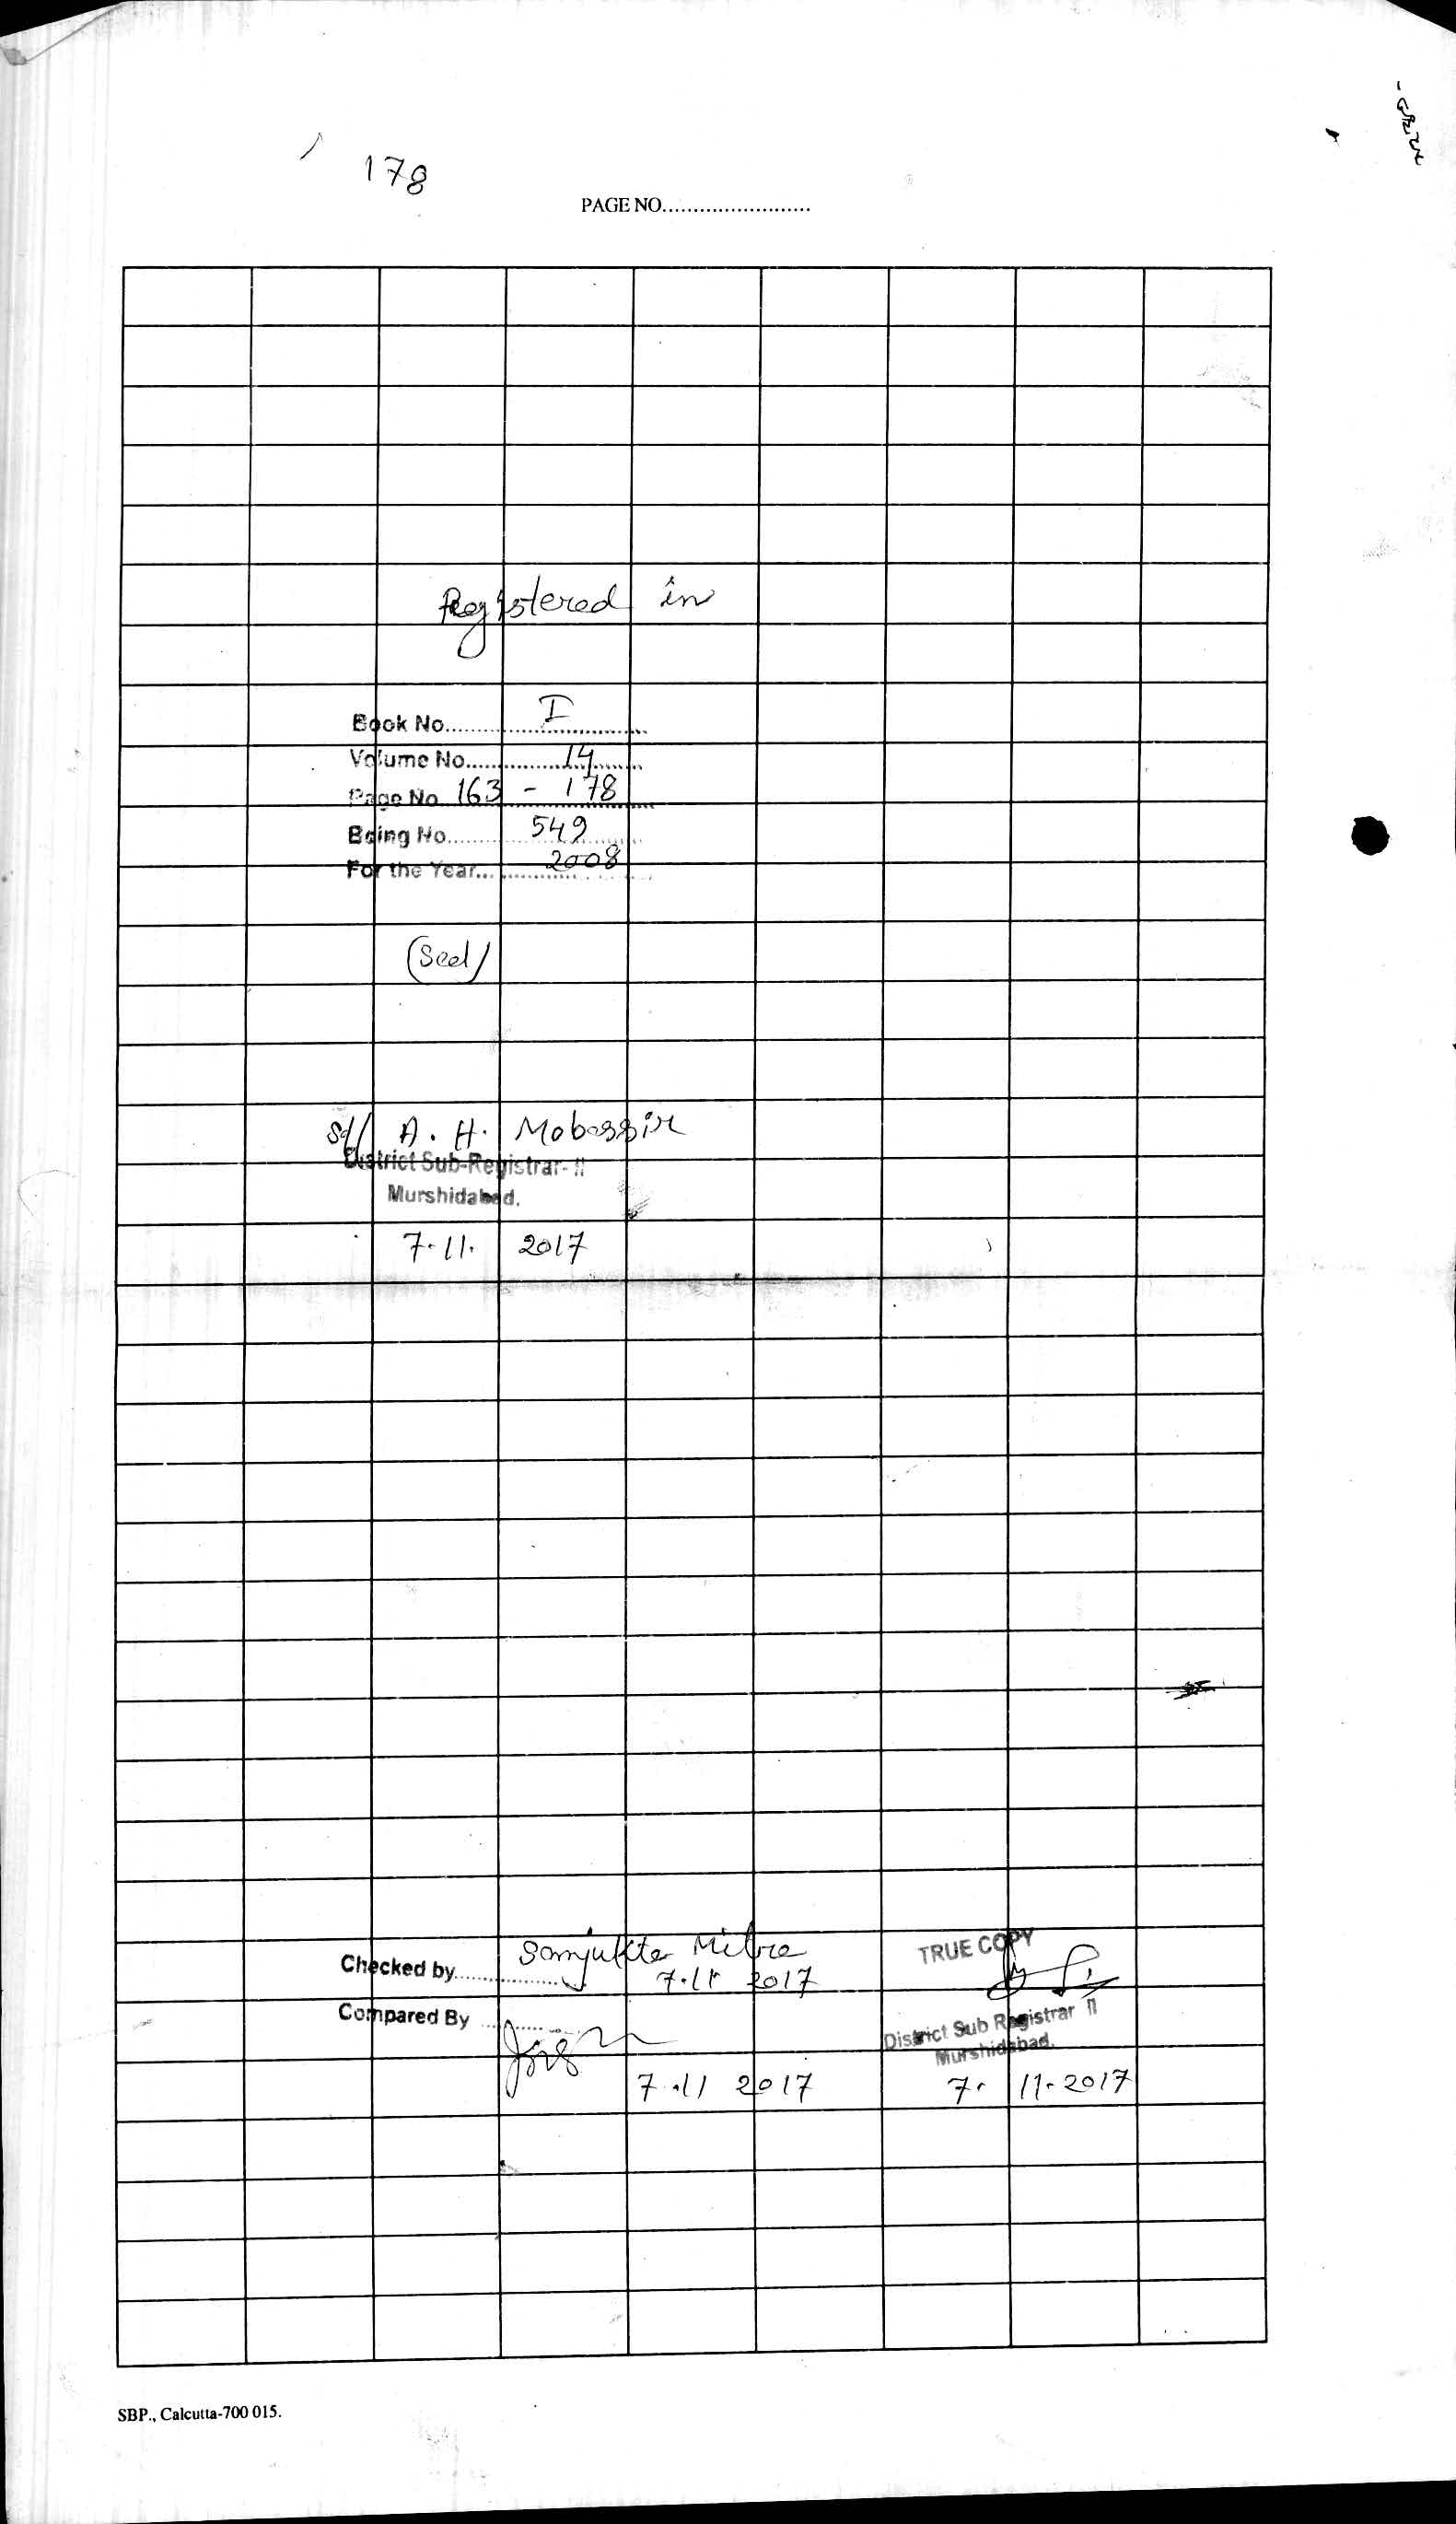 178
PAGE NO........................
Registered in
Book No.......... I ..................
Volume No.......... 14 ..........
Page No. 163 - 178
Being No.......... 549 ..........
For the Year... 2008
(Seal)
Sd/ A. H. Mobassir
District Sub-Registrar- II
Murshidabad.
7.11. 2017
Checked by.................. Samjukta Mitra
7.11 2017
TRUE COPY
Compared By ..........
District Sub Registrar II
Murshidabad.
7.11 2017
7. 11. 2017
SBP., Calcutta-700 015.